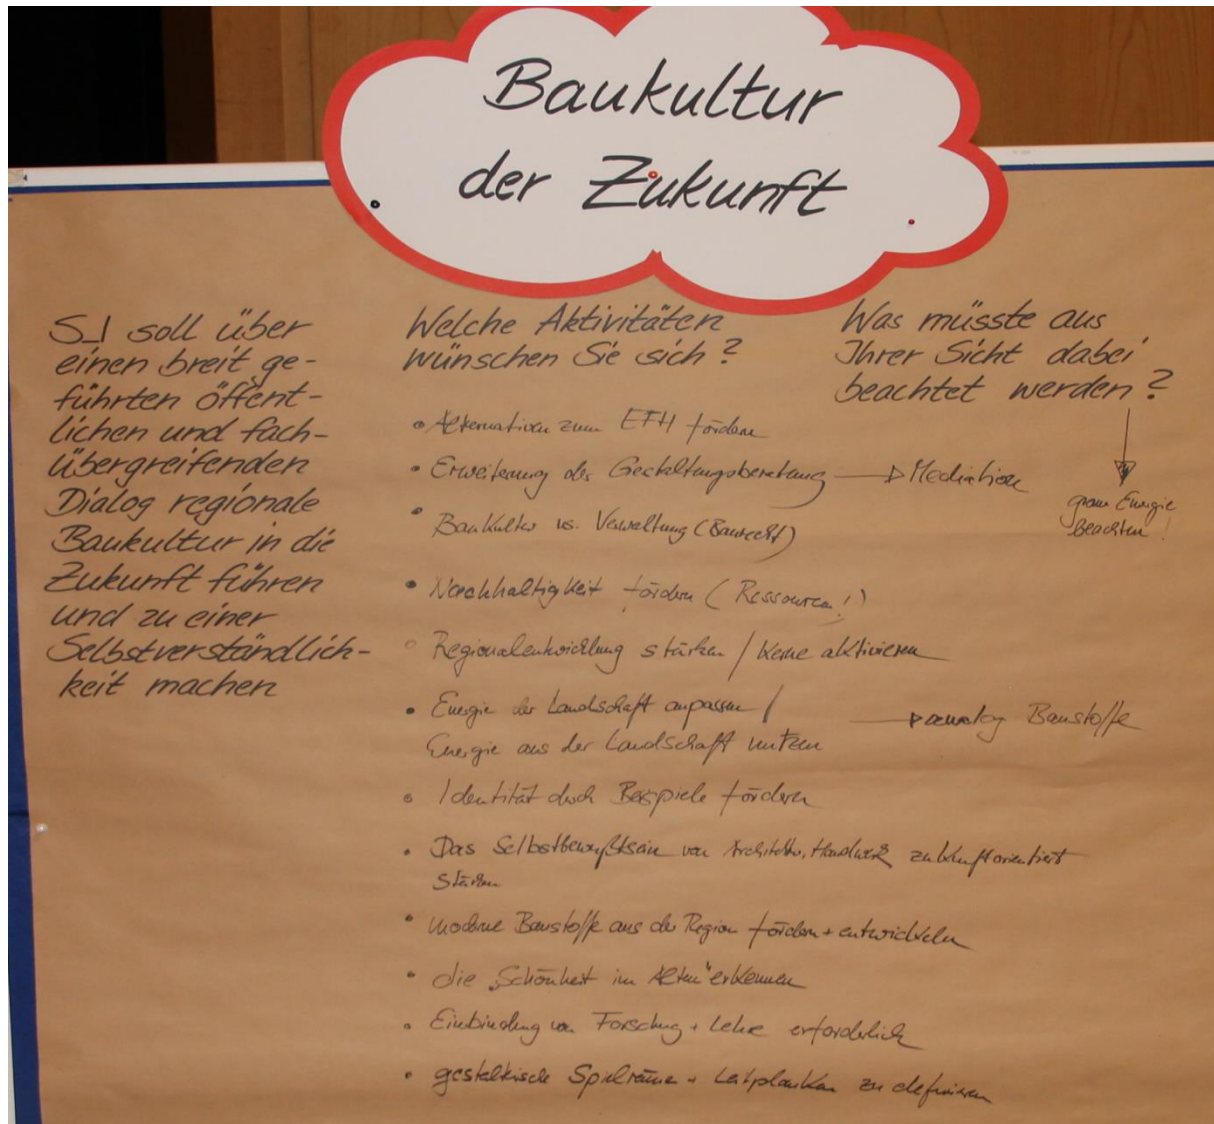 Baukultur
der Zukunft
S_I soll über
einen breit ge-
führten öffent-
lichen und fach-
übergreifenden
Dialog regionale
Baukultur in die
Zukunft führen
und zu einer
Selbstverständlich-
keit machen
Welche Aktivitäten
wünschen Sie sich?
• Alternativen zum EFH fördern
• Erweiterung der Gestaltungsberatung → Mediation
• Baukultur vs. Verwaltung (Baurecht)
• Nachhaltigkeit fördern (Ressourcen!)
• Regionalentwicklung stärken / Kerne aktivieren
• Energie der Landschaft anpassen /
Energie aus der Landschaft nutzen → analog Baustoffe
• Identität durch Beispiele fördern
• Das Selbstbewußtsein von Architektur, Handwerk zukunftorientiert
stärken
• moderne Baustoffe aus der Region fördern + entwickeln
• die „Schönheit im Alten" erkennen
• Einbindung von Forschung + Lehre erforderlich
• gestalterische Spielräume + Leitplanken zu definieren
Was müsste aus
Ihrer Sicht dabei
beachtet werden?
graue Energie
beachten!